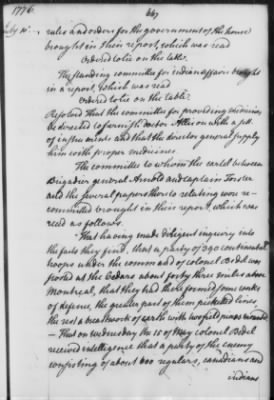 1776.
667
July 10.
rules and orders for the government of the house
brought in their report, which was read
Ordered to lie on the table.
The standing committee for indian affairs brought
in a report, which was read
Ordered to lie on the table.
Resolved That the committee for providing medicines
be directed to furnish doctor with a sett
of instruments and that the director general supply
him with proper medicines.
The committee to whom the cartel between
Brigadier general Arnold and captain Forster
and the several papers thereto relating were re-
committed brought in their report, which was
read as follows.
That having made diligent inquiry into
the facts they find, that a party of 390 continental
troops under the command of colonel Bedel was
posted at the Cedars about forty three miles above
Montreal, that they had there formed some works
of defence, the greater part of them picketted lines,
the rest a breastwork of earth with two field pieces mounted
— That on wednesday the 15 of May colonel Bedel
received intelligence that a party of the enemy
consisting of about 600 regulars, canadians and
indians